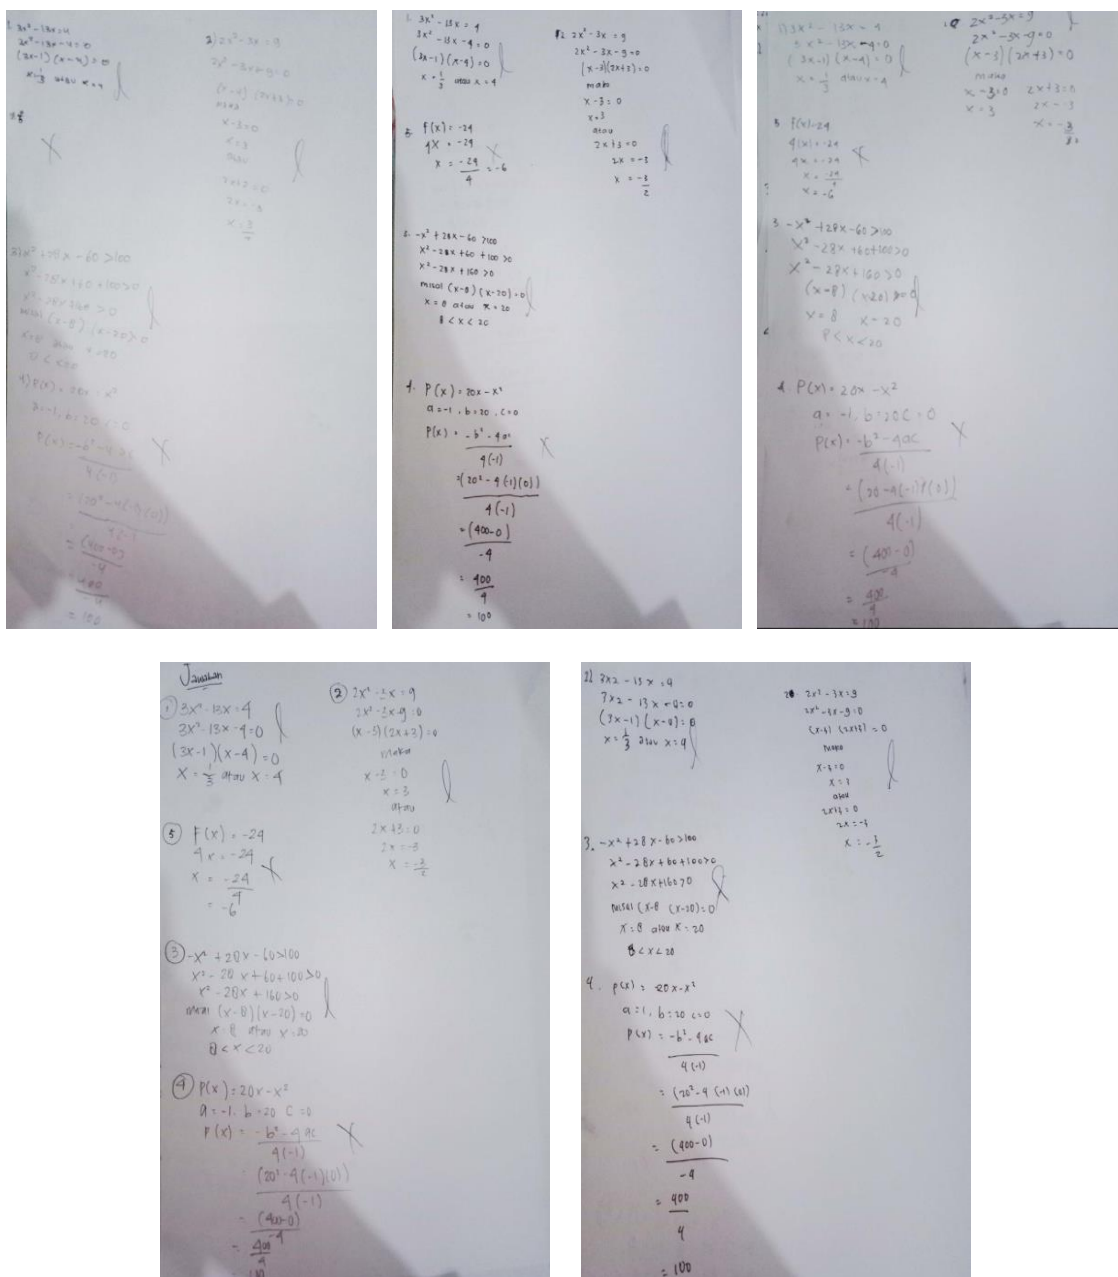 1. 3x² - 13x = 4
3x² - 13x - 4 = 0
(3x-1)(x-4) = 0
x = 1/3 atau x = 4
2) 2x² - 3x = 9
2x² - 3x - 9 = 0
x-3=0
atau
3) -x² + 28x - 60 > 100
x² - 28x + 60 + 100 > 0
misal (x-8)(x-20) > 0
4) P(x) = 20x - x²
a = -1, b = 20, c = 0
4(-1)
= (20² - 4(-1)(0))
4(-1)
= (400-0)
-4
= 100
1. 3x² - 13x = 4
3x² - 13x - 4 = 0
(3x-1)(x-4) = 0
x = 1/3 atau x = 4
5. f(x) = -24
4x = -24
x = -24/4 = -6
2 2x² - 3x = 9
2x² - 3x - 9 = 0
(x-3)(2x+3) = 0
maka
x-3 = 0
x = 3
atau
2x+3 = 0
2x = -3
x = -3/2
-x² + 28x - 60 > 100
x² - 28x + 60 + 100 > 0
x² - 28x + 160 > 0
misal (x-8)(x-20) = 0
x = 8 atau x = 20
8 < x < 20
4. P(x) = 20x - x²
a = -1, b = 20, c = 0
P(x) = -b² - 4ac
4(-1)
= (20² - 4(-1)(0))
4(-1)
= (400-0)
-4
= 400
4
= 100
3x² - 13x = 4
3x² - 13x - 4 = 0
(3x-1)(x-4) = 0
x = 1/3 atau x = 4
2x² - 3x = 9
2x² - 3x - 9 = 0
(x-3)(2x+3) = 0
maka
x-3=0 2x+3=0
x = 3 2x = -3
5. f(x) = -24
4(x) = -24
4x = -24
x = -24/4
x = -6
3. -x² + 28x - 60 > 100
x² - 28x + 60 + 100 > 0
x² - 28x + 160 > 0
(x-8)(x-20)
x = 8 x = 20
8 < x < 20
4. P(x) = 20x - x²
a = -1, b = 20 c = 0
P(x) = -b² - 4ac
4(-1)
4(-1)
= (400-0)
-4
= 400
4
= 100
Jawaban
① 3x² - 13x = 4
3x² - 13x - 4 = 0
(3x-1)(x-4) = 0
x = 1/3 atau x = 4
② 2x² - 3x = 9
2x² - 3x - 9 = 0
(x-3)(2x+3) = 0
maka
x - 3 = 0
x = 3
atau
2x+3 = 0
2x = -3
x = -3/2
⑤ F(x) = -24
4x = -24
x = -24
4
= -6
③ -x² + 28x - 60 > 100
x² - 28x + 60 + 100 > 0
x² - 28x + 160 > 0
misal (x-8)(x-20) = 0
x = 8 atau x = 20
8 < x < 20
④ P(x) = 20x - x²
a = -1, b = 20 c = 0
P(x) = -b² - 4ac
4(-1)
= (20² - 4(-1)(0))
4(-1)
= (400-0)
-4
= 400
4
3x2 - 13x = 4
3x2 - 13x - 4 = 0
(3x-1).(x-4) = 0
x = 1/3 atau x = 4
2x² - 3x = 9
2x² - 3x - 9 = 0
(x-3) (2x+3) = 0
maka
x-3=0
x = 3
atau
2x+3 = 0
2x = -3
x = -3/2
3. -x² + 28x - 60 > 100
x² - 28x + 60 + 100 > 0
x² - 28x + 160 > 0
misal (x-8 (x-20) = 0
x = 8 atau x = 20
8 < x < 20
4. P(x) = 20x - x²
a = 1, b = 20 c = 0
P(x) = -b² - 4ac
4(-1)
= (20² - 4 (-1) (0))
4(-1)
= (400-0)
-4
= 400
4
= 100